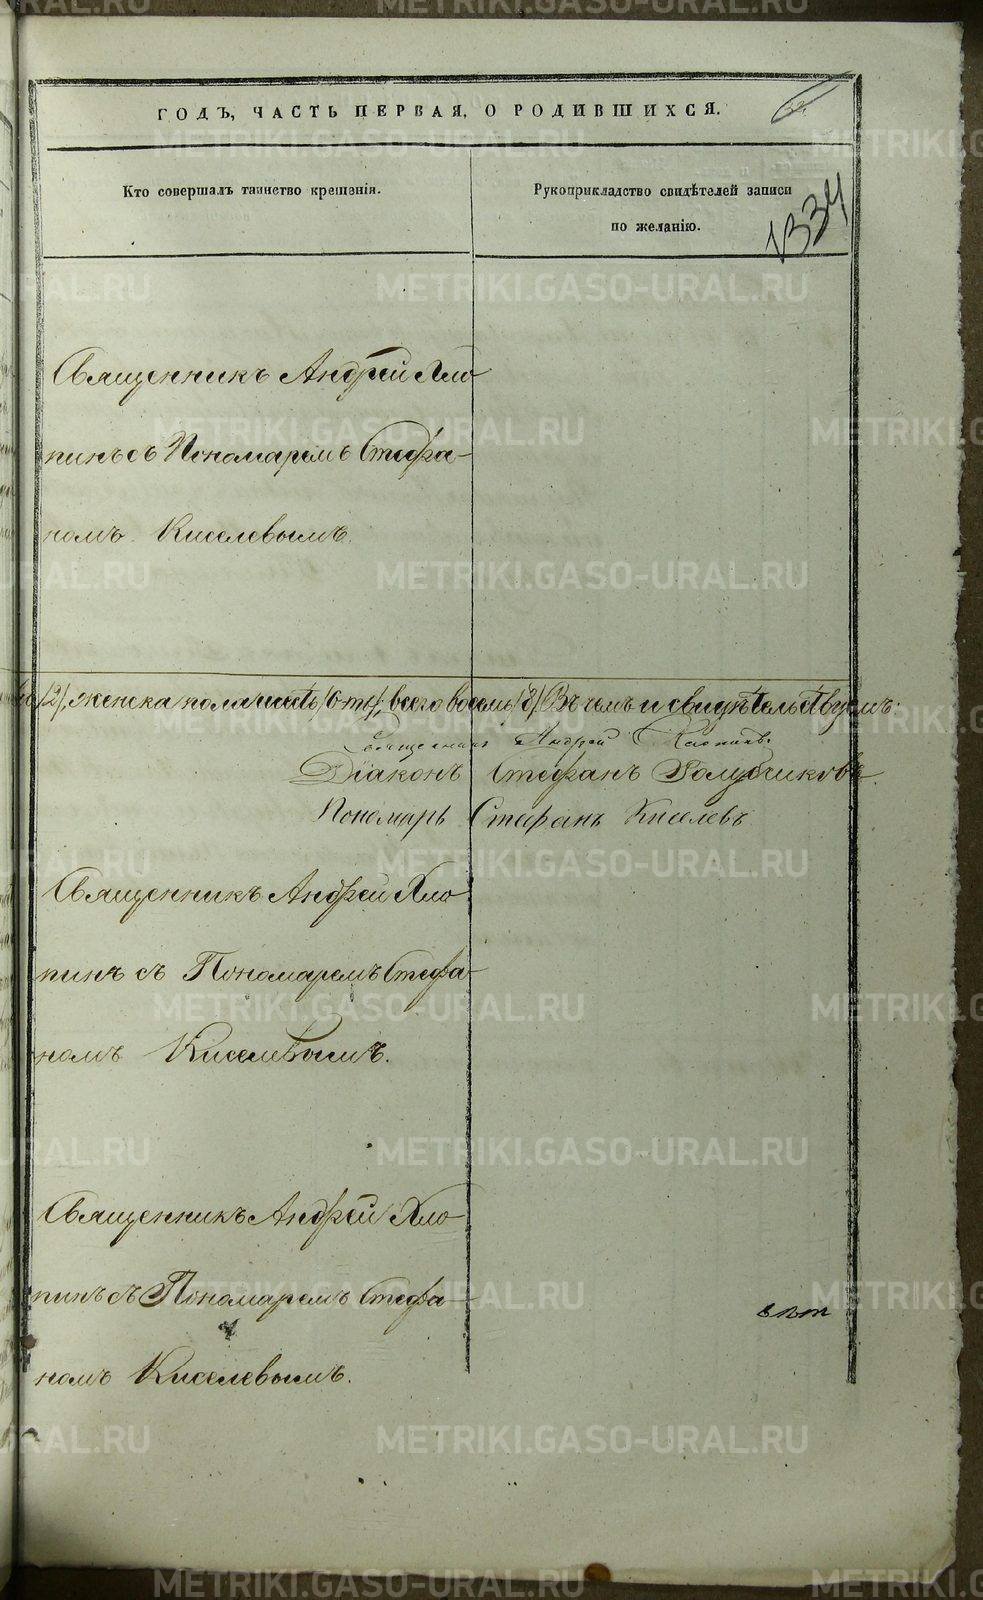 ГОДЪ, ЧАСТЬ ПЕРВАЯ, О РОДИВШИХСЯ.
Кто совершалъ таинство крещенія.
Рукоприкладство свидѣтелей записи
по желанію.
1334
Священникъ Андрей Хло
пинъ съ Пономаремъ Стефа-
номъ Киселевымъ.
/2/, женска пола шесть /6-ть/, всего восемь /8/ Въ чемъ и свидѣтельствуемъ:
Священникъ Андрей Хлопинъ
Діаконъ Стефанъ Голубчиковъ.
Пономарь Стефанъ Киселевъ
Священникъ Андрей Хло
пинъ съ Пономаремъ Стефа-
номъ Киселевымъ.
Священникъ Андрей Хло
пинъ съ Пономаремъ Стефа-
номъ Киселевымъ.
METRIKI.GASO-URAL.RU